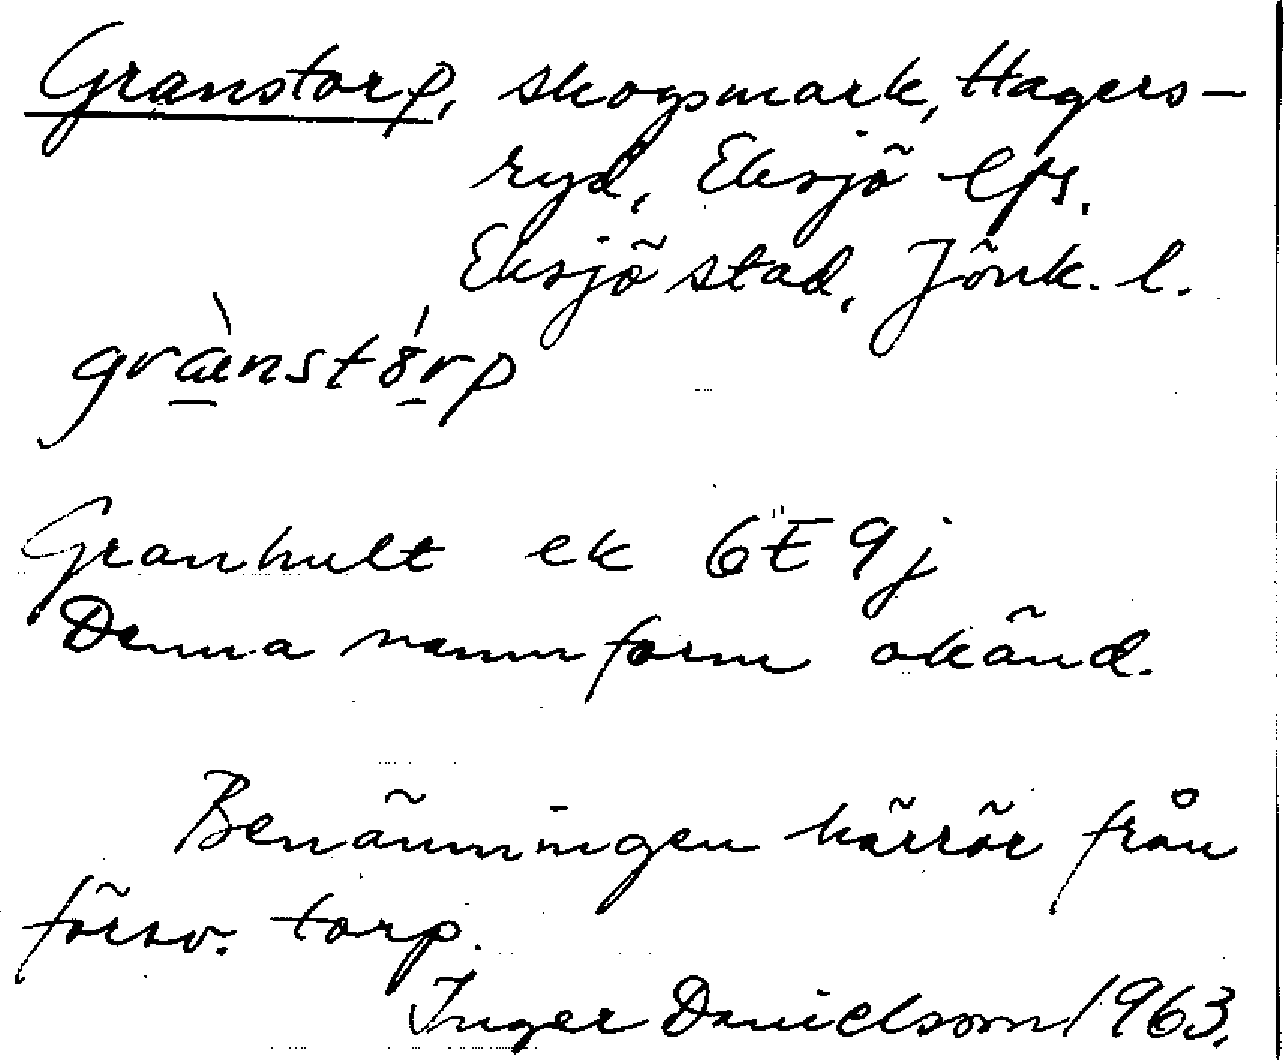 Granstorp, skogsmark, Hagers-
ryd, Eksjö lfs.
Eksjö stad, Jönk. l.
grànstórp
Granhult ek 6E 9j
Denna namnform okänd.
Benämningen härrör från
försv. torp.
Inger Danielsson 1963.